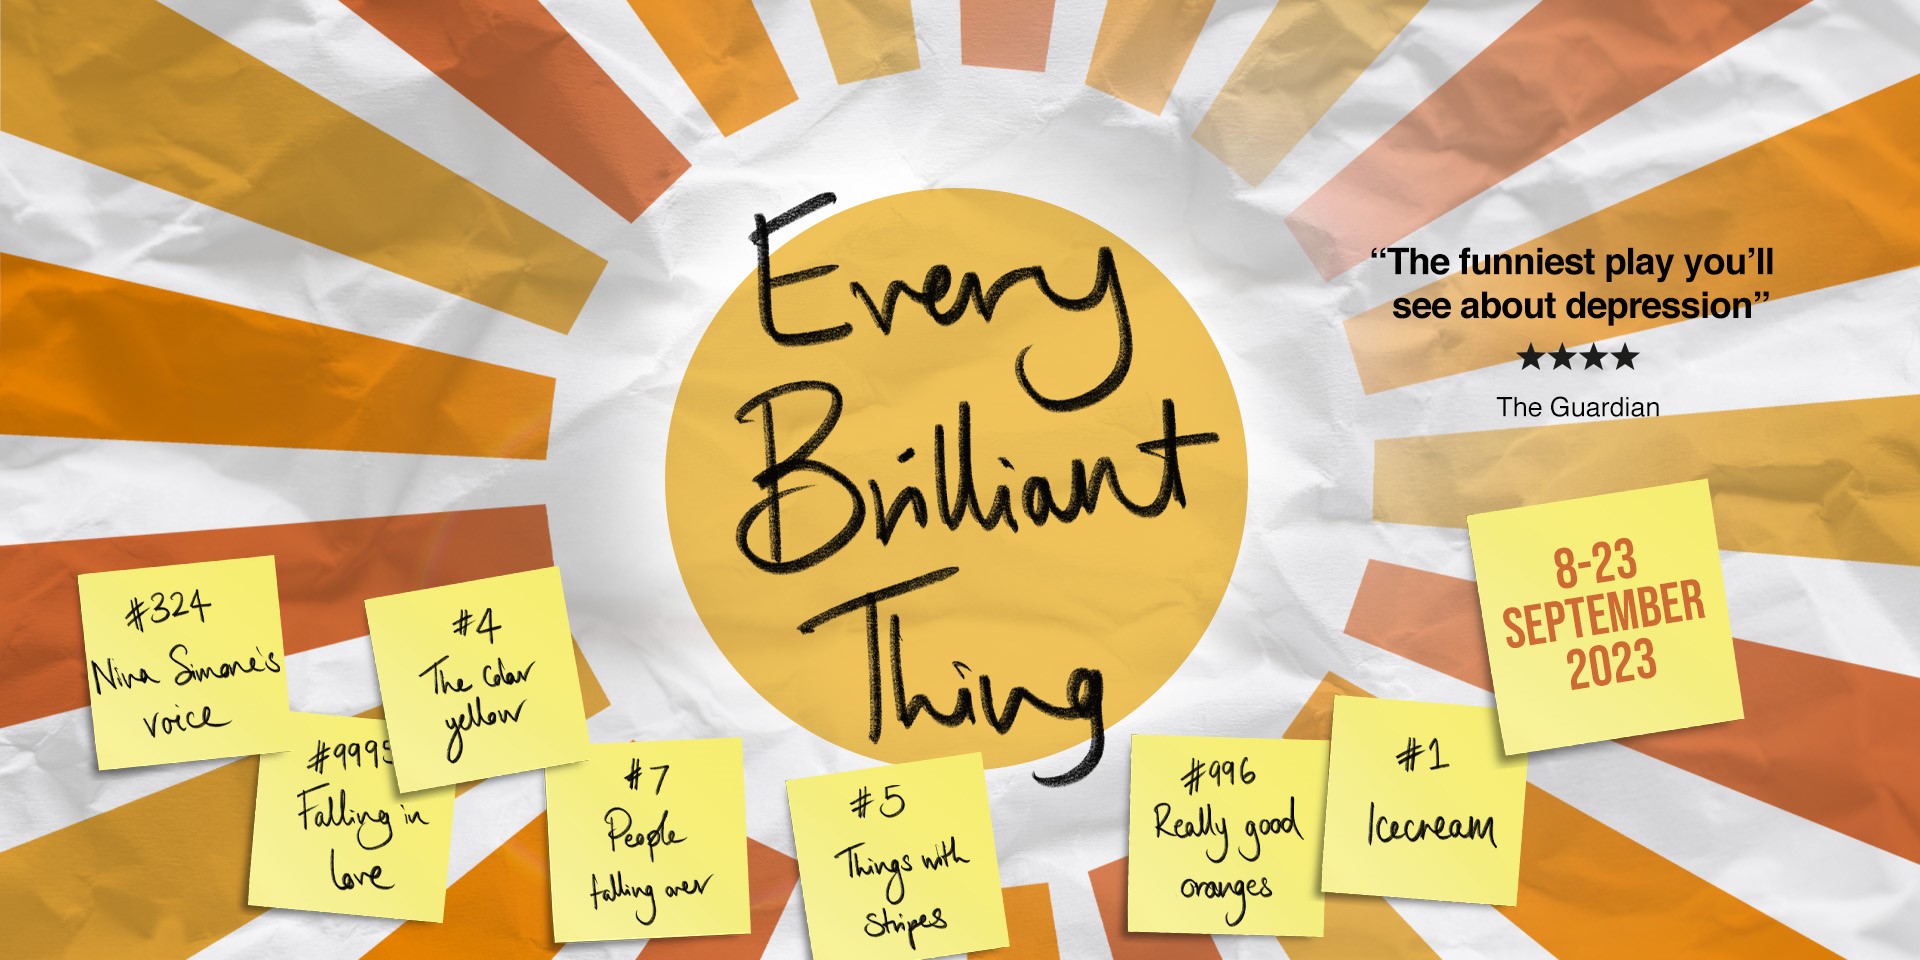 Every
Brilliant
Thing
“The funniest play you’ll
see about depression”
★★★★
The Guardian
8-23
SEPTEMBER
2023
#324
Nina Simone's
voice
#9995
Falling in
love
#4
The Colour
yellow
#7
People
falling over
#5
Things with
Stripes
#996
Really good
oranges
#1
Icecream